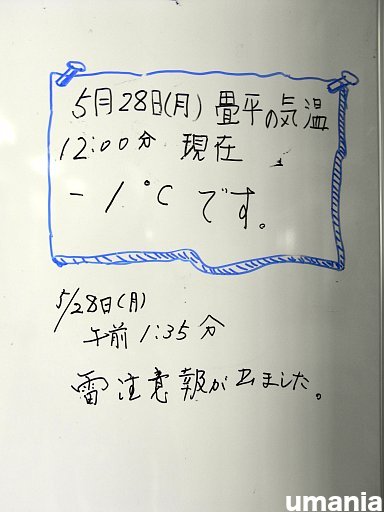 5月28日(月) 畳平の気温
12:00分 現在
-1℃ です。
5/28日(月)
午前 1:35分
雷注意報が出ました。
umania